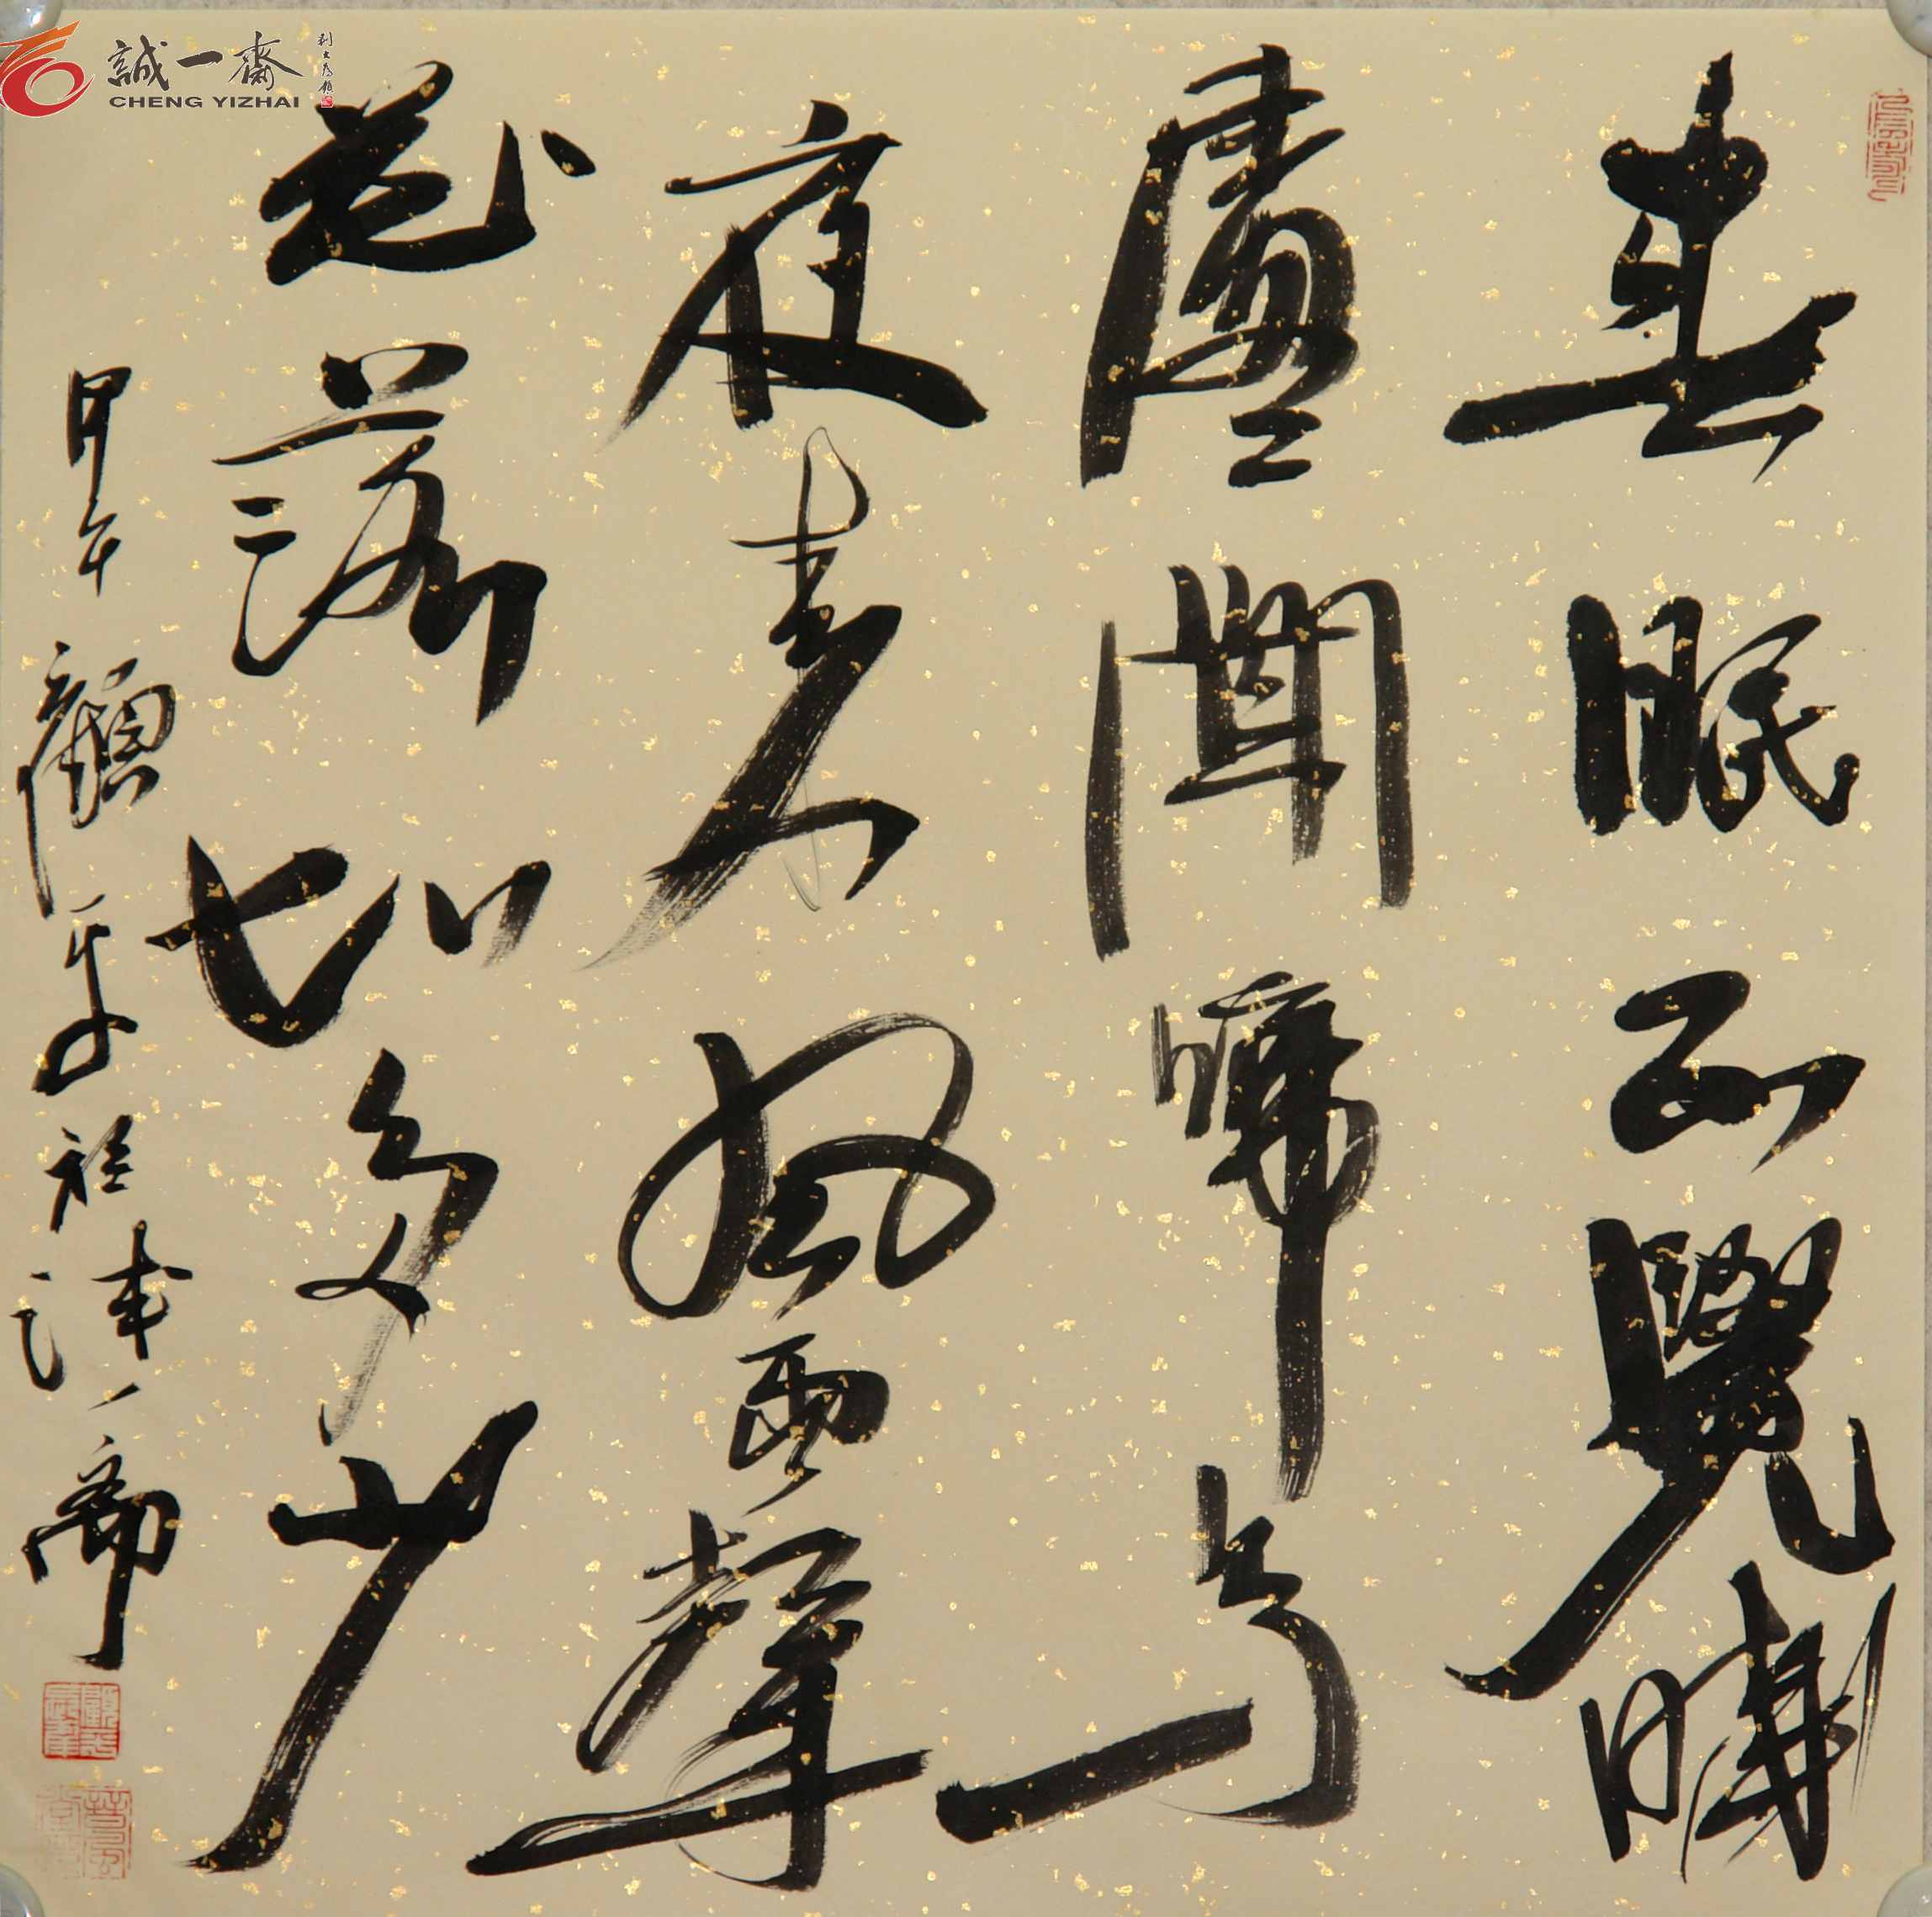 誠一齋
CHENG YIZHAI
春眠不覺曉
處〻聞啼鳥
夜来風雨聲
花落知多少
甲午 顧 於津